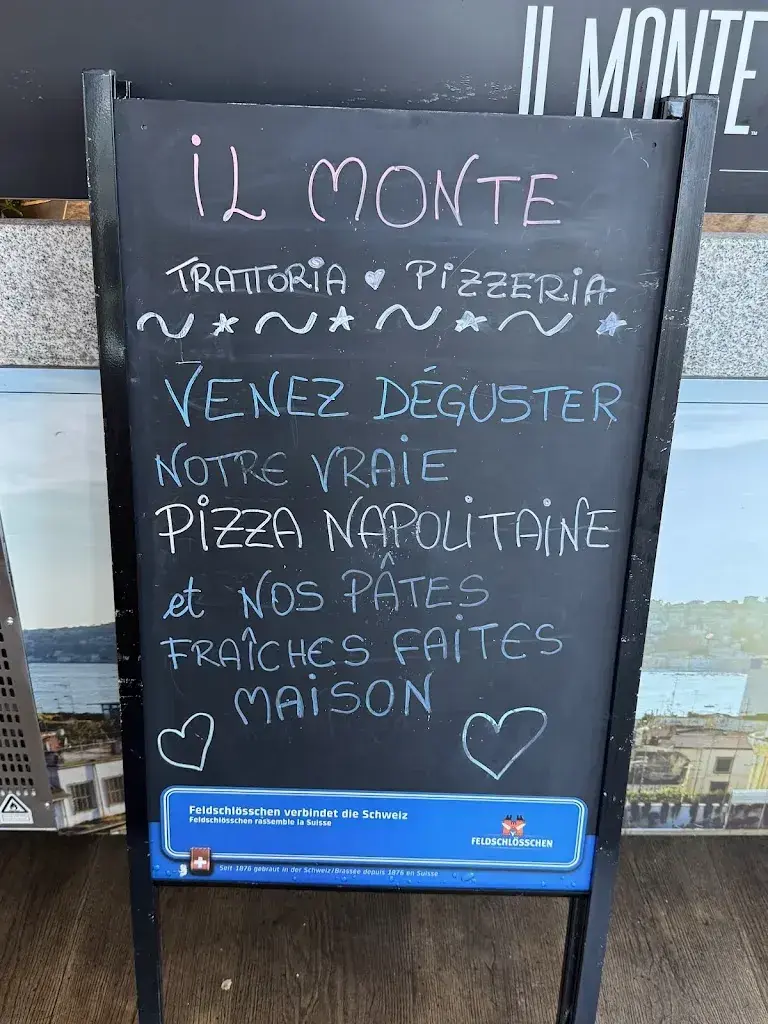 IL MONTE
iL MONTE
TRATTORiA PiZZERiA
VENEZ DÉGUSTER
NOTRE VRAiE
PiZZA NAPOLiTAiNE
et NOS PÂTES
FRAÎCHES FAiTES
MAiSON
Feldschlösschen verbindet die Schweiz
Feldschlösschen rassemble la Suisse
FELDSCHLÖSSCHEN
Seit 1876 gebraut in der Schweiz/Brassée depuis 1876 en Suisse